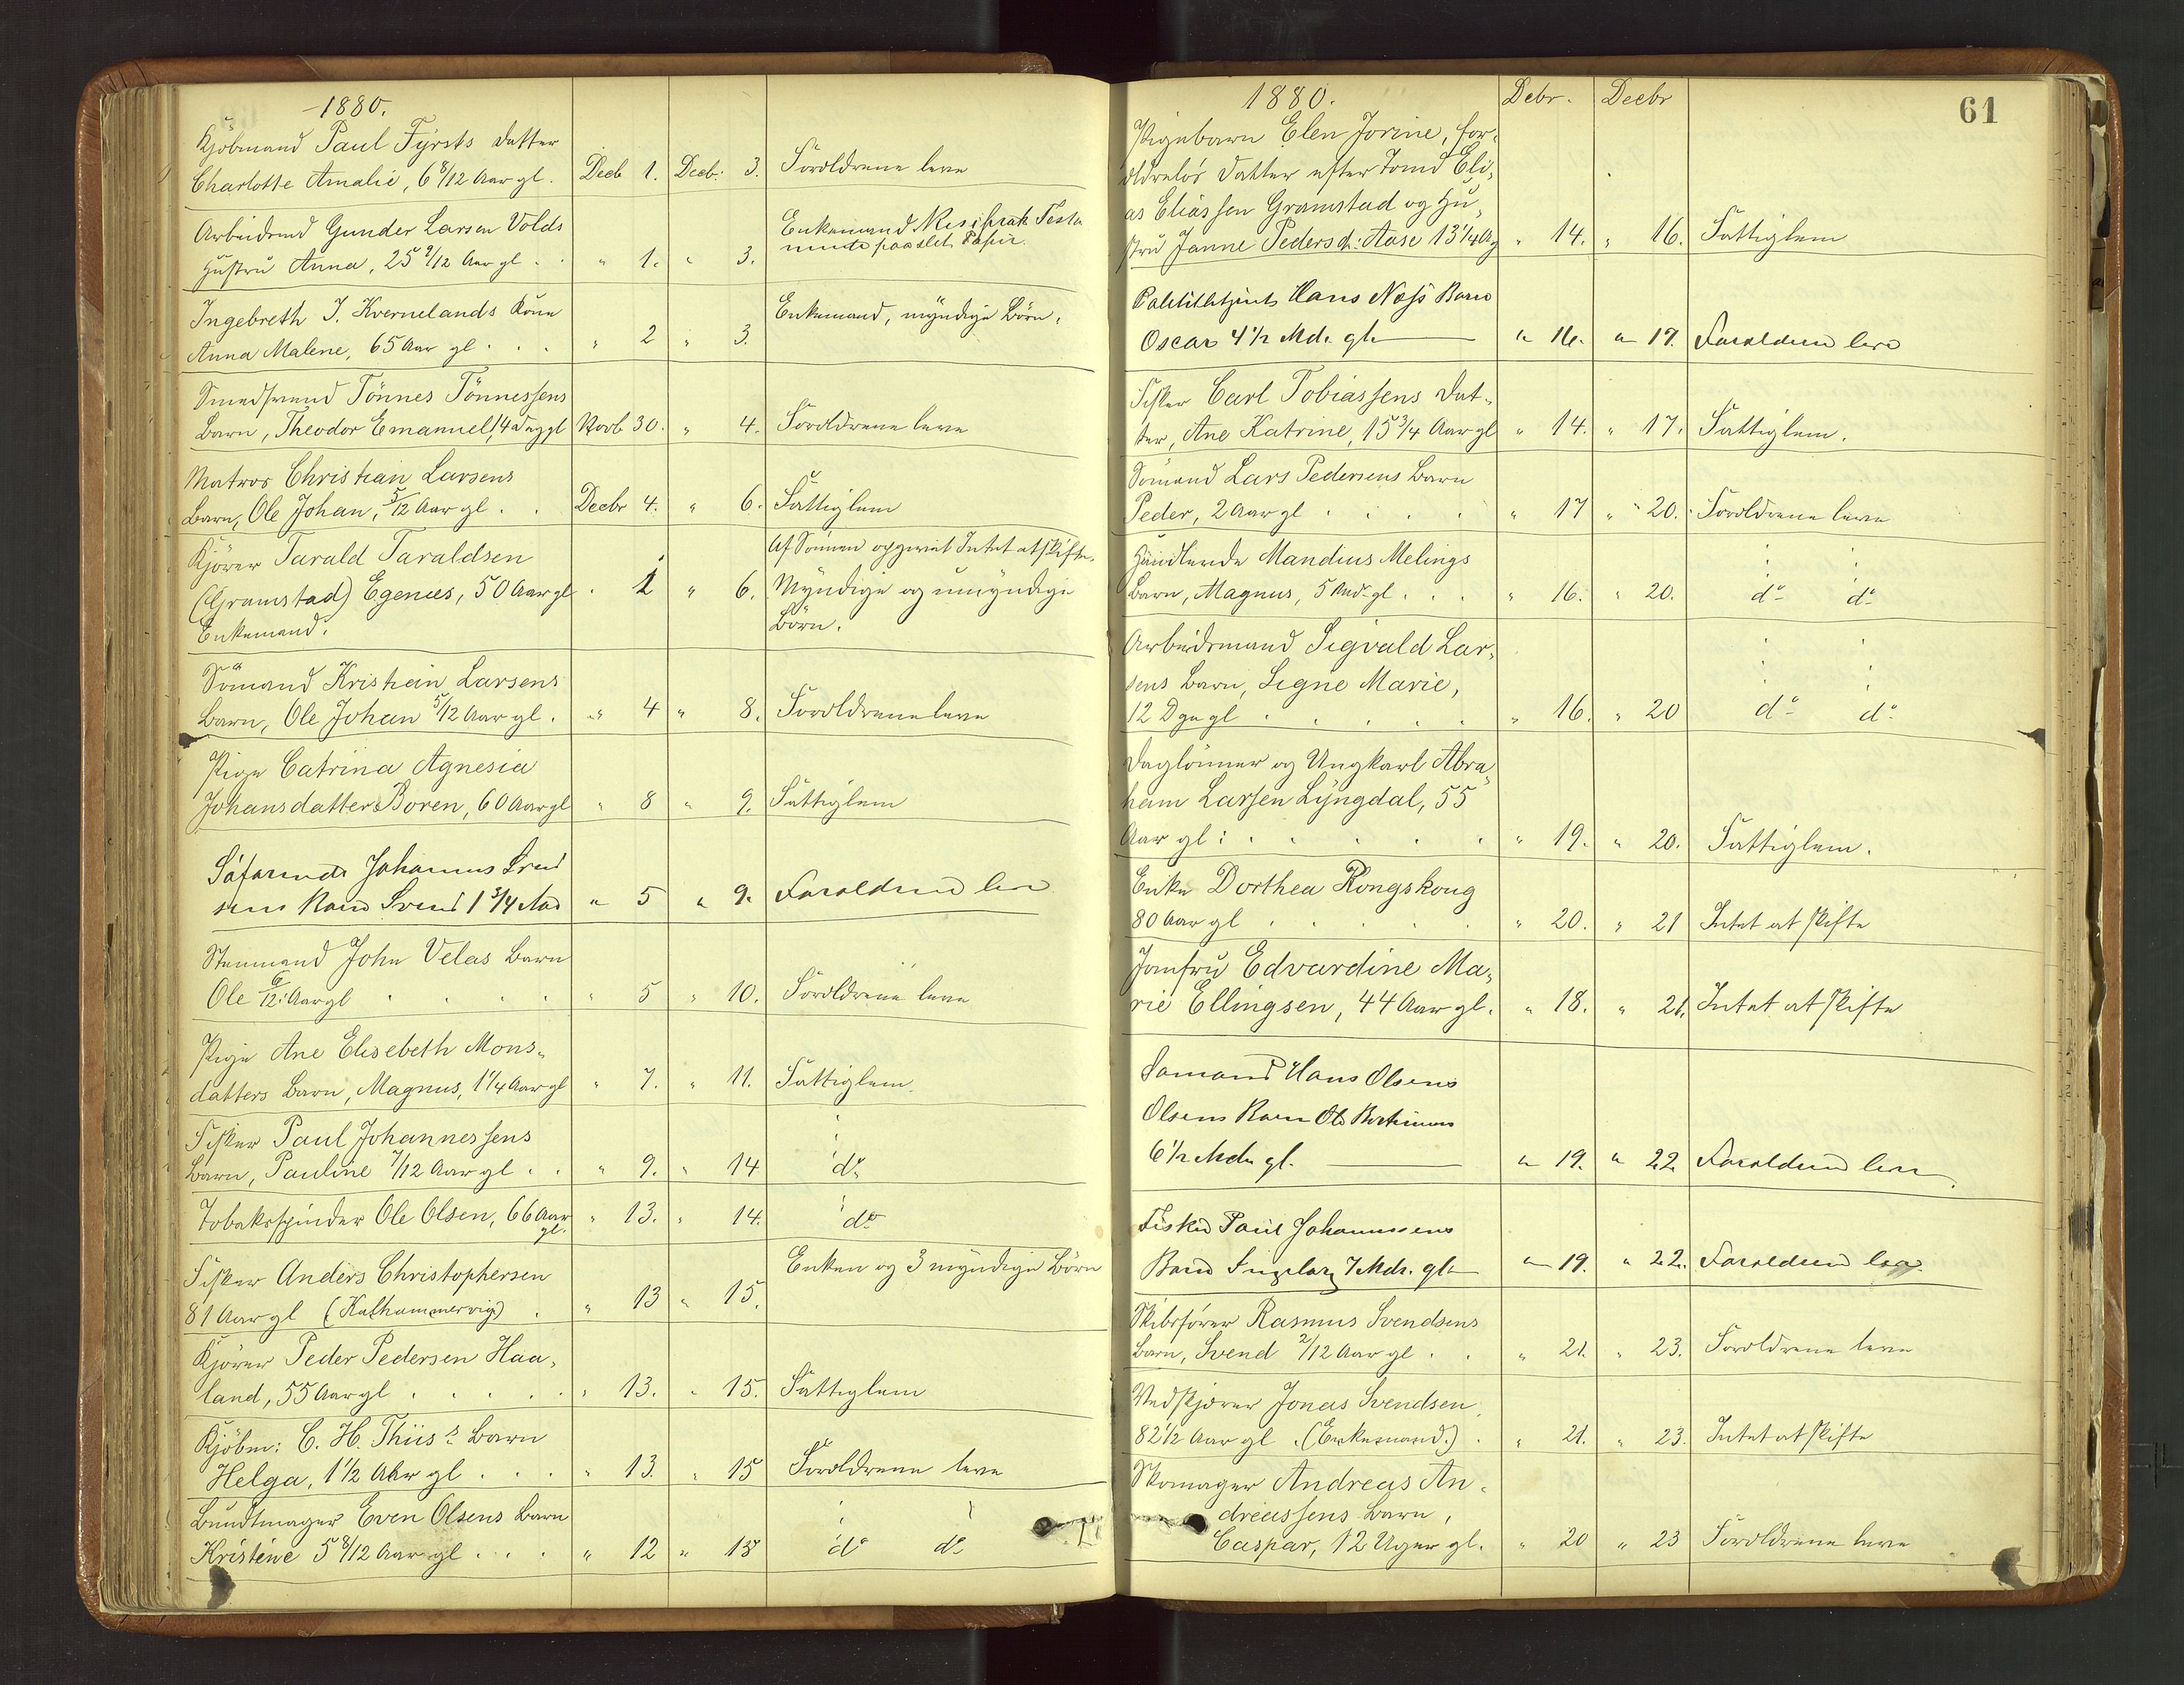 1880.
Kjöbmand Paul Fyrsts Datter
Charlotte Amalie, 6 8/12 Aar gl. Decb 1. Decb. 3. Forældrene leve
Arbeidsmd Gunder Larsen Volds
Hustru Anna, 25 9/12 Aar gl. " 1. " 3. Enkemand Resiprok Testa
mente paa slet Papir.
Ingebreth I. Kvernelands Kone
Anna Malene, 65 Aar gl . . . " 2 " 3. Enkemand, myndige Börn.
Smedsvend Tönnes Tönnessens
Barn, Theodor Emanuel, 14 Dag gl Novb 30. " 4. Forældrene leve
Matros Christian Larsens
Barn, Ole Johan, 5/12 Aar gl . . Decbr 4. " 6. Fattiglem
Kjörer Tarald Taraldsen
(Gramstad) Egenæs, 50 Aar gl. 1 " 6.
Enkemand.
Af Sönnen opgivet Intet at skifte.
Myndige og umyndige
Börn.
Sömand Kristian Larsens
Barn, Ole Johan 5/12 Aar gl. " 4 " 8. Forældrene leve
Pige Catrina Agnesia
Johansdatter Boren, 60 Aar gl " 8 " 9. Fattiglem
Söfarende Johannes
sens Barn Svend 1 3/4 Aar " 5 " 9. Forældrene leve
Stenmand John Velas Barn
Ole 6/12 Aar gl . . . . " 5 " 10. Forældrene leve
Pige Ane Elisebeth Mons-
datters Barn, Magnus, 1 1/4 Aar gl " 7. " 11. Fattiglem.
Fisker Paul Johannessens
Barn, Pauline 7/12 Aar gl . . " 9. " 14 do
Tobaksspinder Ole Olsen, 66 Aar gl. " 13. " 14. do
Fisker Anders Christophersen
81 Aar gl (Kalhammervig) . " 13 " 15. Enken og 3 myndige Börn
Kjörer Peder Pedersen Haa-
land, 55 Aar gl . . . . " 13. " 15. Fattiglem
Kjöbm: C. H. Thiis's Barn
Helga, 1 1/2 Aar gl . . . " 13. " 15 Forældrene leve
Bundtmager Even Olsens Barn
Kristine 5 8/12 Aar gl . . . " 12 " 15 do do
61
1880. Debr. Decbr
Pigebarn Elen Jorine, for-
ældreløs Datter efter Tomd Eli-
as Eliassen Gramstad og Hu-
stru Janne Pedersd: Aase 13 1/4 A g " 14. " 16. Fattiglem
Politibetjent Hans Næss Barn
Oscar 4 1/2 Md. gl. " 16. " 17. Forældrene leve
Fisker Carl Tobiassens Dat-
ter, Ane Katrine, 15 3/4 Aar gl " 14. " 17. Fattiglem.
Sömand Lars Pedersens Barn
Peder, 2 Aar gl . . . . " 17 " 20. Forældrene leve
Handlende Mandius Melings
Barn, Magnus, 5 Md. gl . . . " 16. " 20. do do
Arbeidsmand Sigvald Lar-
sens Barn, Signe Marie,
12 Dge gl . . . . . " 16. " 20 do do
Daglönner og Ungkarl Abra-
ham Larsen Lyngdal, 55
Aar gl : . . . . . " 19. " 20. Fattiglem.
Enke Dorthea Kongskoug
80 Aar gl . . . . . " 20. " 21 Intet at skifte
Jomfru Edvardine Ma-
rie Ellingsen, 44 Aar gl. " 18. " 21. Intet at skifte
Sømand Hans Olsens
Olsens Barn Ole
6 1/2 Mdr gl. " 19. " 22 Forældrene leve
Fisker Paul Johannessens
Barn 7 Mdr. gl " 19. " 22. Forældrene leve
Skibsförer Rasmus Svendsens
Barn, Svend 2/12 Aar gl . . " 21. " 23. Forældrene leve
Vedskjærer Jonas Svendsen
82 1/2 Aar gl . (Enkemand.) . " 21. " 23. Intet at skifte
Skomager Andreas An-
dreassens Barn,
Caspar, 12 Uger gl. " 20 " 23 Forældrene leve